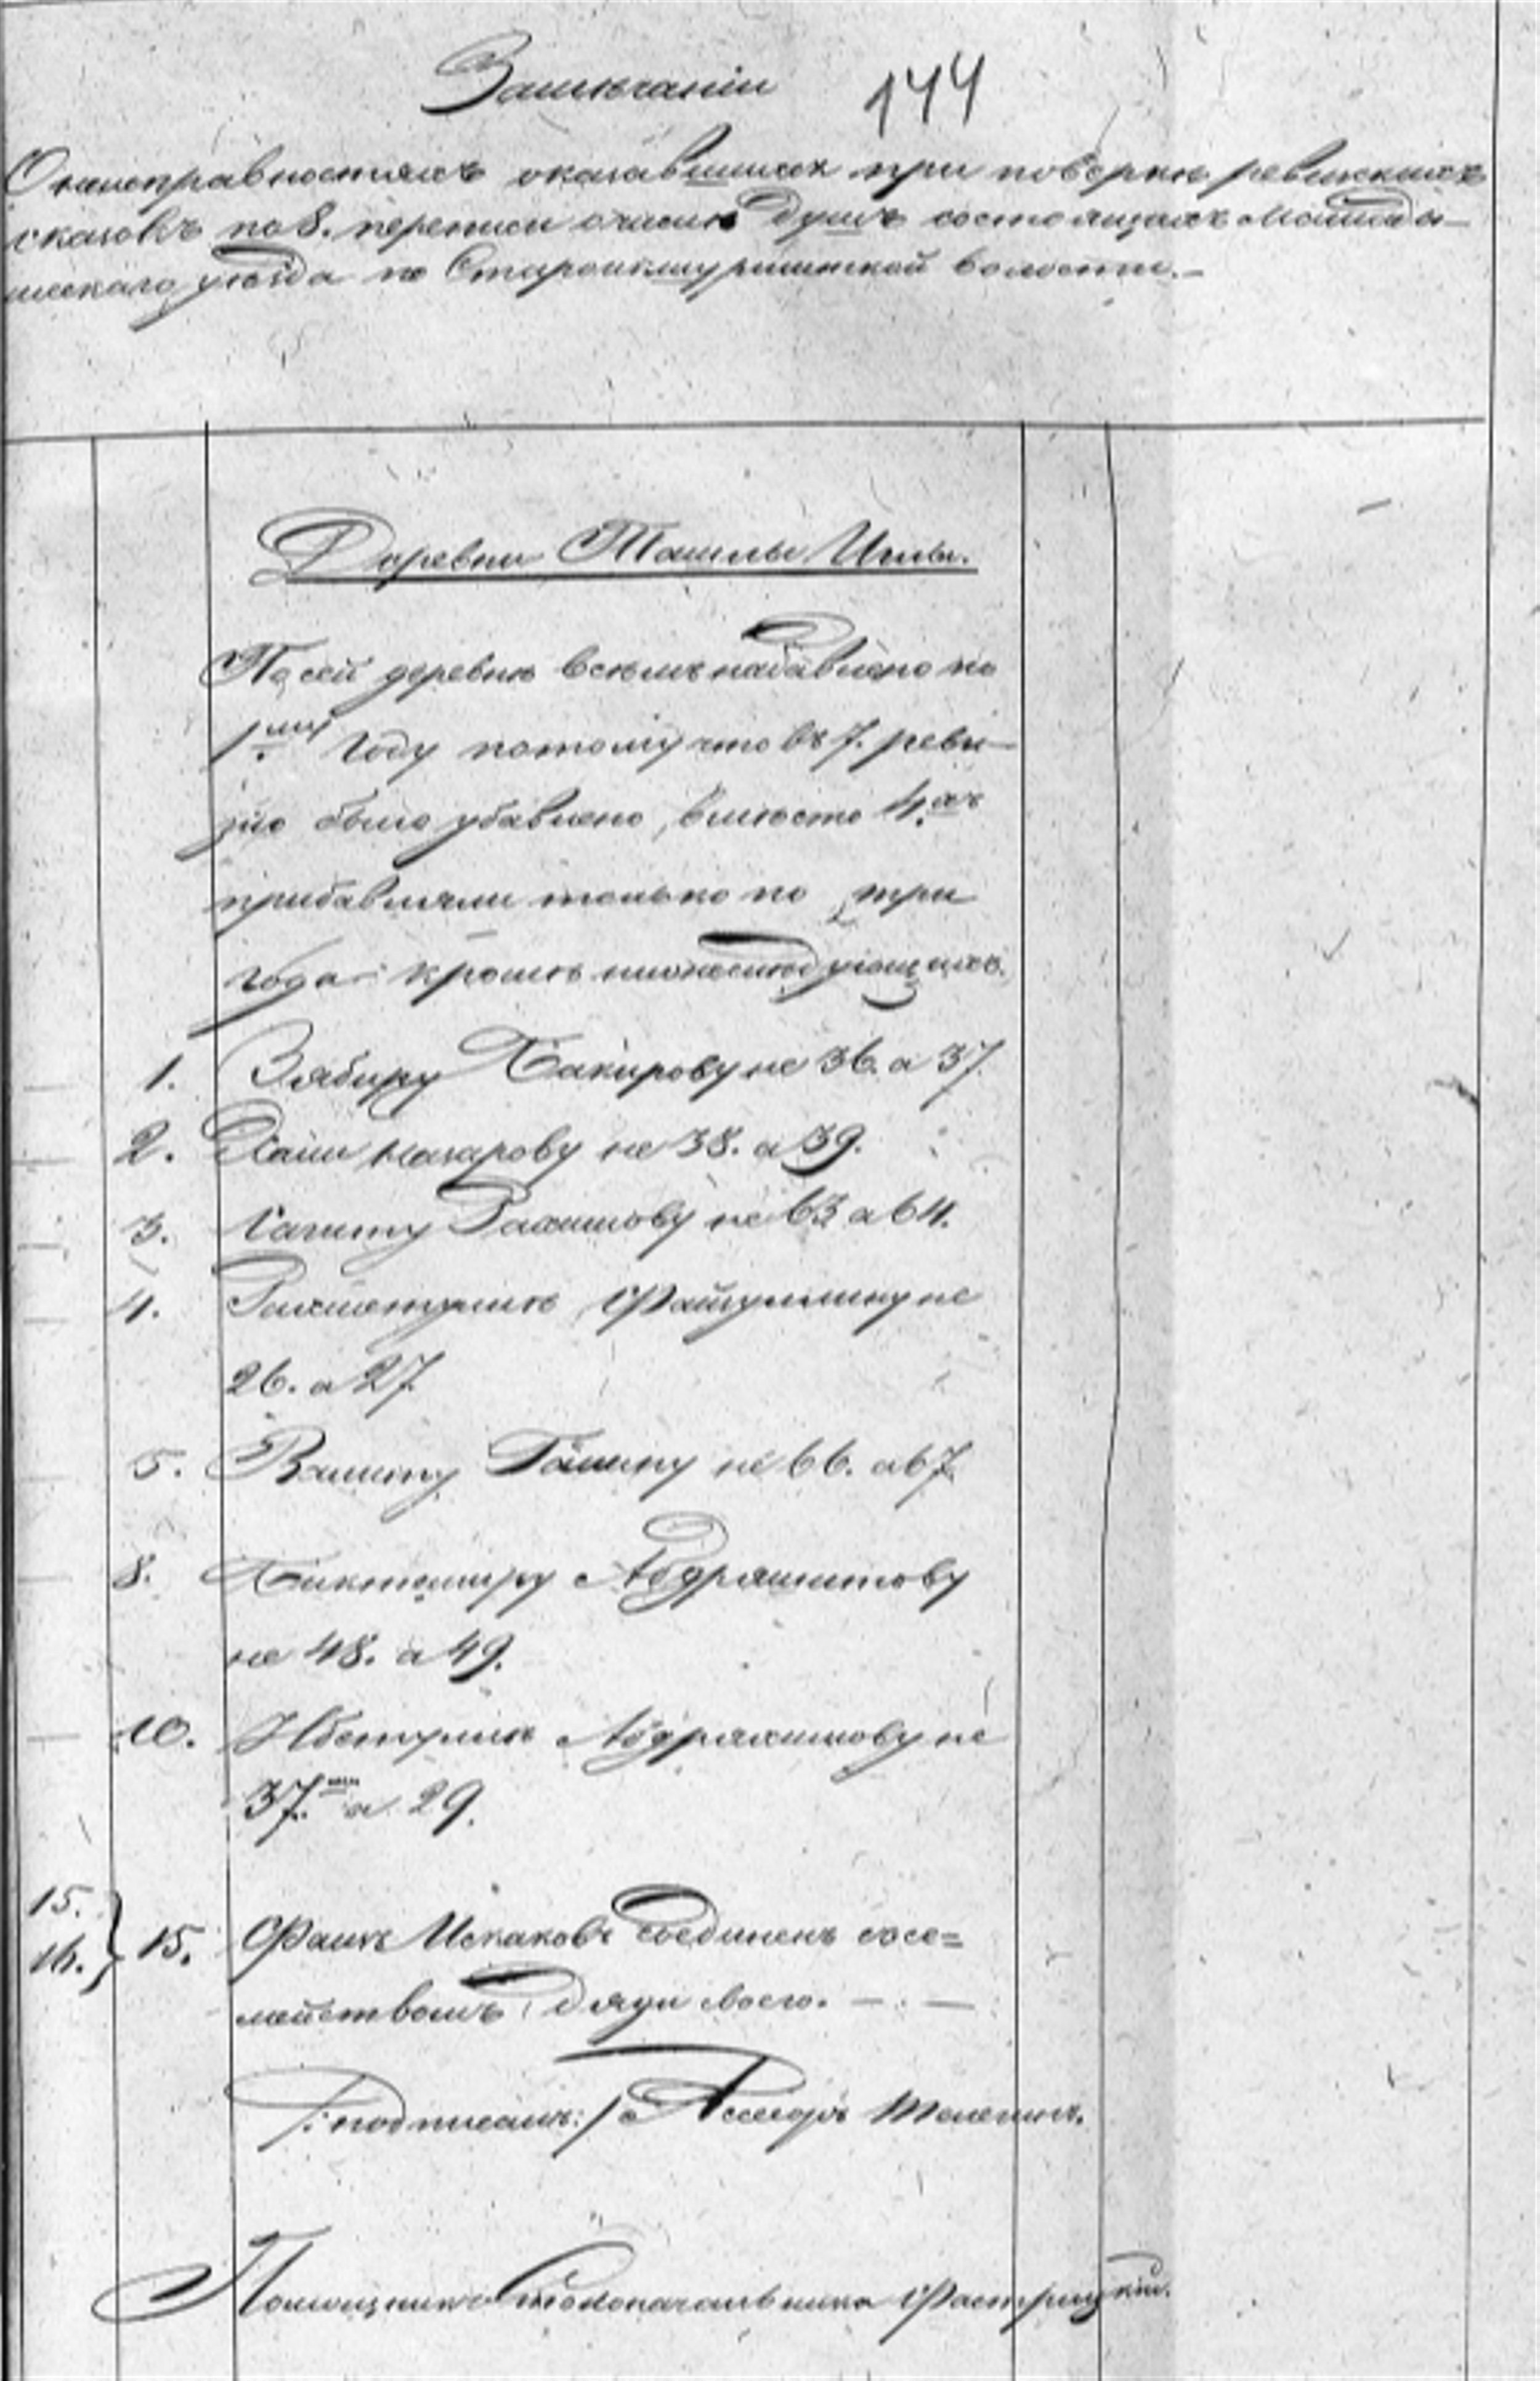 Замѣчаніи 144
О неисправностяхъ оказавшихся при повѣрки ревижскихъ
сказокъ по 8. переписи очислѣ душъ состоящихъ Мамады-
шскаго уѣзда по Старокумурлинской волости.-
Деревни Ташлы Илы.
По сей деревнѣ всѣмъ набавлено по
1му году потому что въ 7. реви-
зію было убавлено, вмѣсто 4.хъ
прибавляли только по три
года кромѣ нижеслѣдующихъ.
1. Зябиру Бакирову не 36. а 37.
2. Назарову не 38. а 39.
3. Сагиту Рахимову не 63 а 64.
4. Рахметуллѣ Файзуллину не
26. а 27.
5. Вашиту не 66. а 67.
8. Биктемиру Абдряшитову
не 48. а 49.
10. Ибетуллѣ Абдряхимову не
37. а 29.
15.
16. } 15. Фаикъ Искаковъ соединенъ сосе=
мействомъ дяди своего. —.—
/:подписалъ:/ Асесоръ
Помощникъ Столоначальника